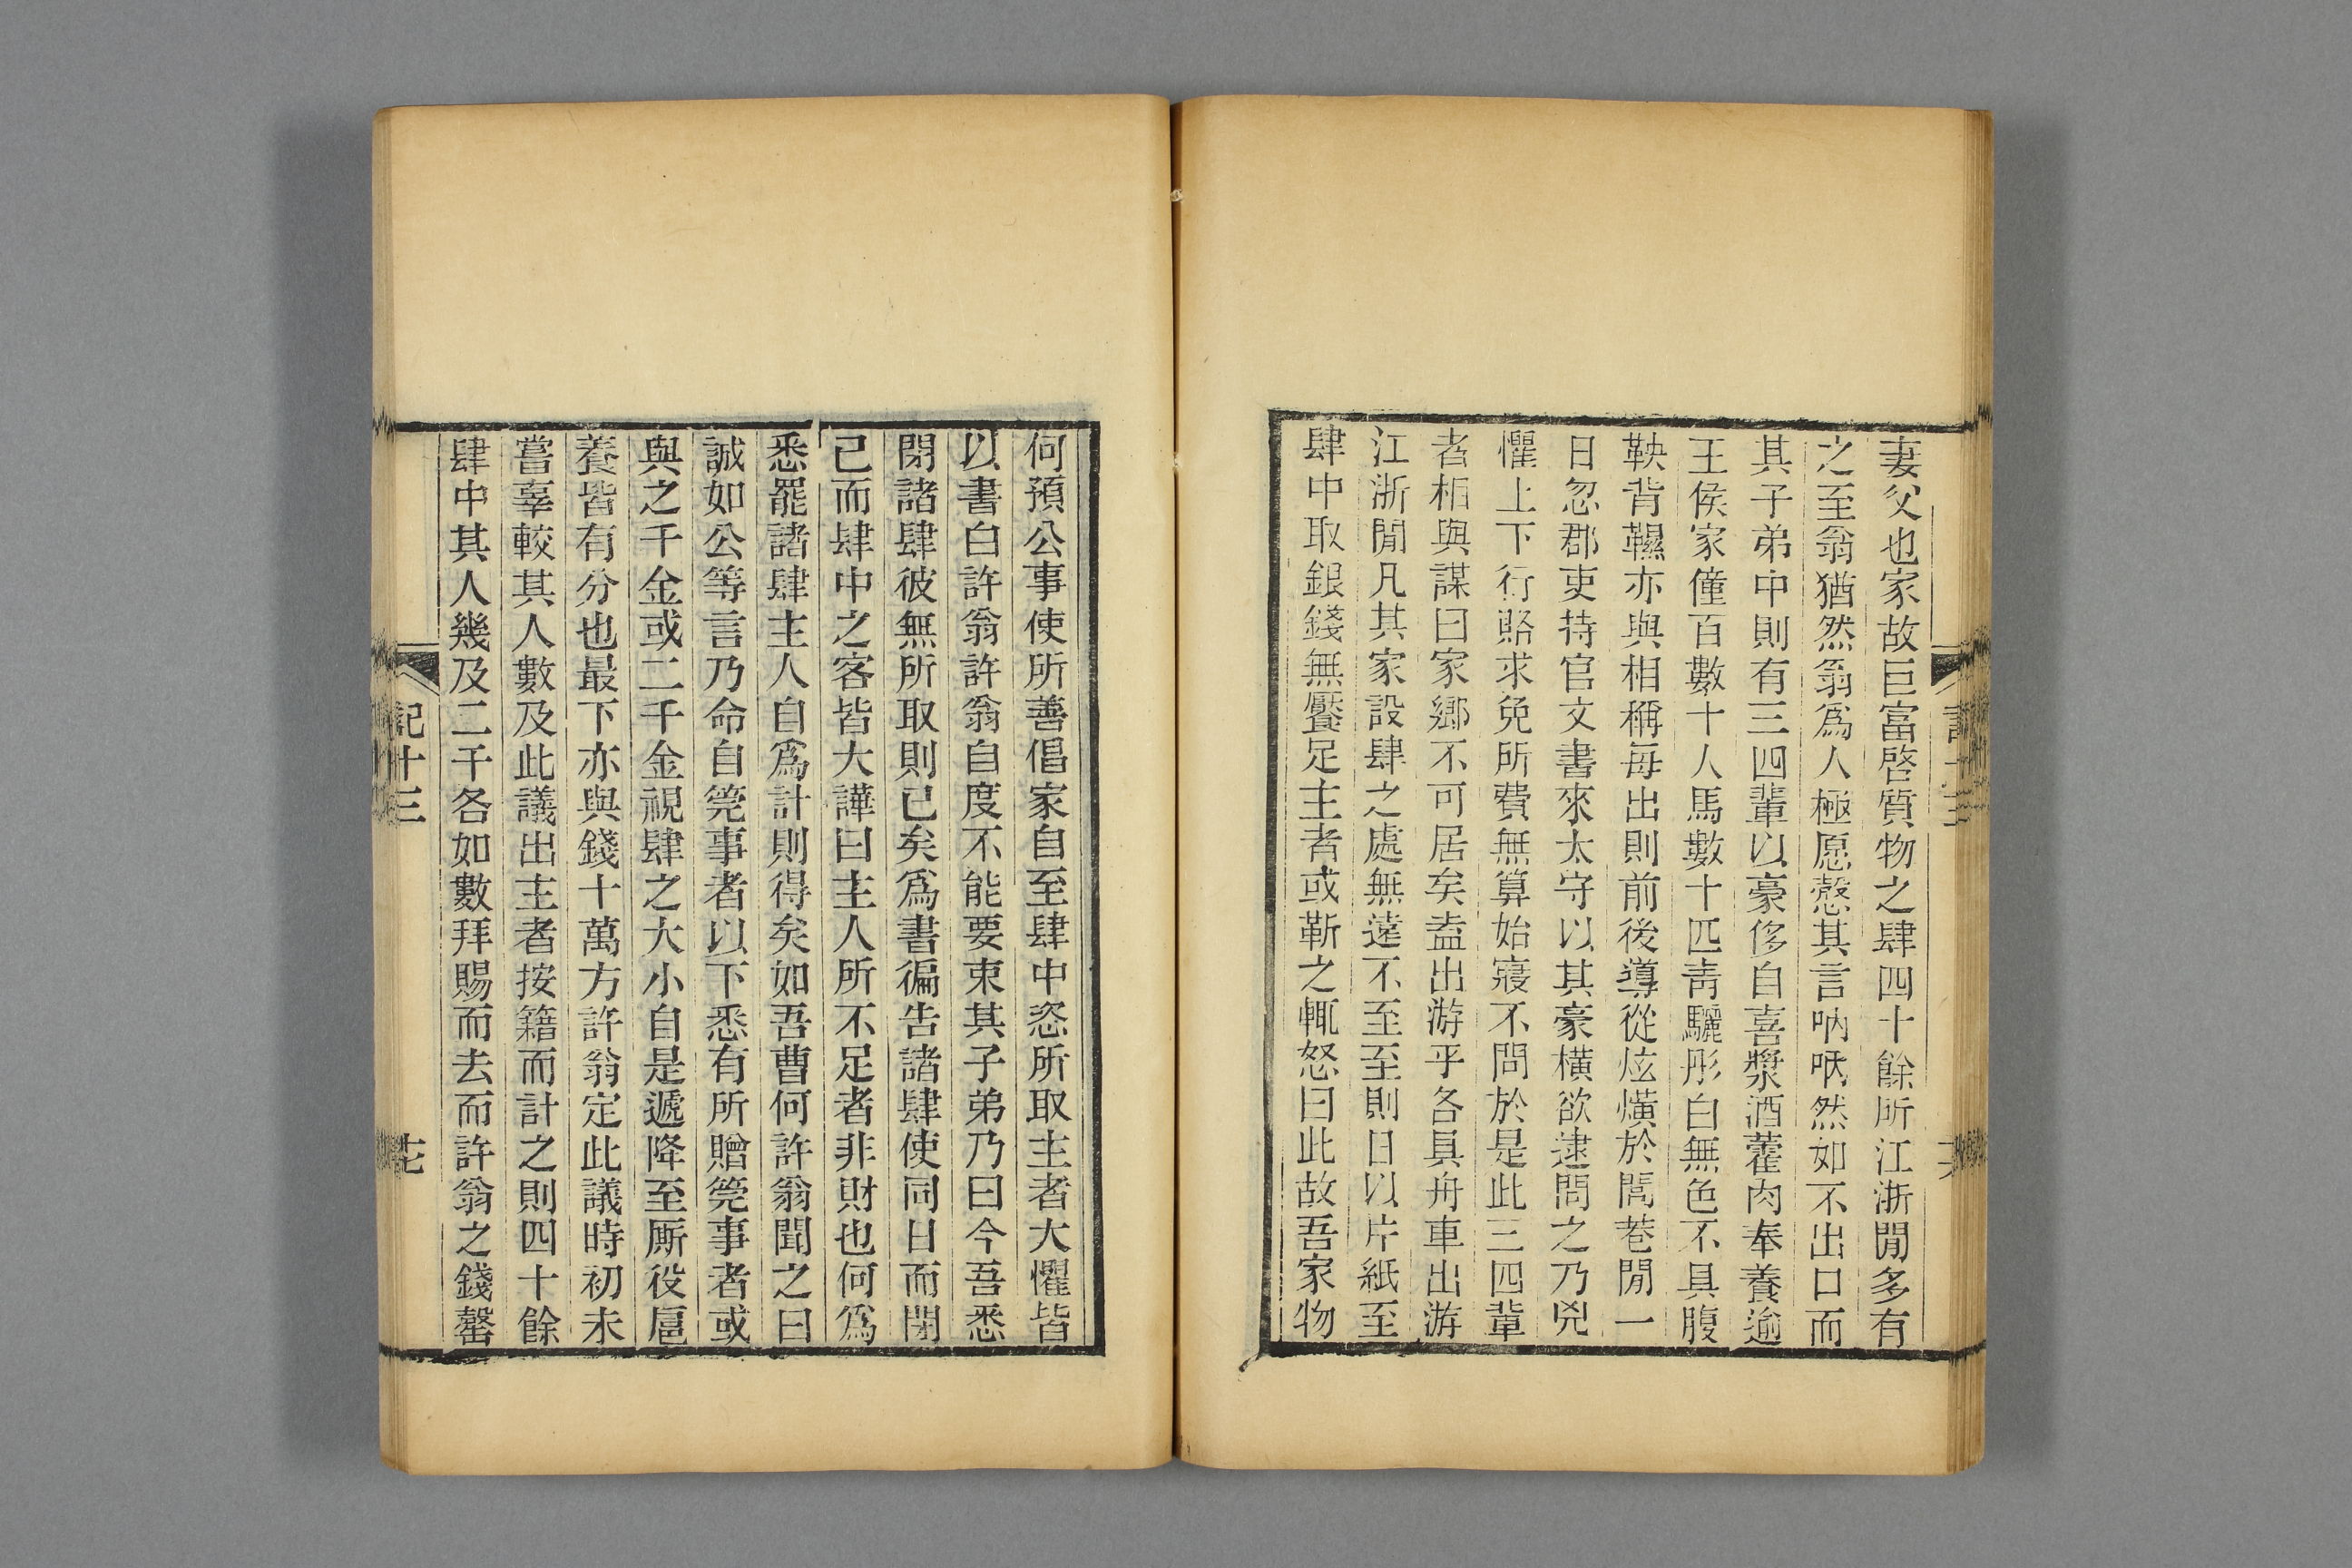 妻父也家故巨富啓質物之肆四十餘所江浙閒多有
之至翁猶然翁爲人極愿慤其言吶吶然如不出口而
其子弟中則有三四輩以豪侈自喜漿酒藿肉奉養逾
王侯家僮百數十人馬數十匹靑驪彤白無色不具腹
鞅背韅亦與相稱每出則前後導從炫熿於閭巷閒一
日忽郡吏持官文書來太守以其豪橫欲逮問之乃兇
懼上下行賂求免所費無算始寢不問於是此三四輩
者相與謀曰家鄉不可居矣盍出游乎各具舟車出游
江浙閒凡其家設肆之處無遠不至至則日以片紙至
肆中取銀錢無饜足主者或靳之輒怒曰此故吾家物
何預公事使所善倡家自至肆中恣所取主者大懼皆
以書白許翁許翁自度不能要束其子弟乃曰今吾悉
閉諸肆彼無所取則已矣爲書徧告諸肆使同日而閉
已而肆中之客皆大譁曰主人所不足者非財也何爲
悉罷諸肆主人自爲計則得矣如吾曹何許翁聞之曰
誠如公等言乃命自筦事者以下悉有所贈筦事者或
與之千金或二千金視肆之大小自是遞降至厮役扈
養皆有分也最下亦與錢十萬方許翁定此議時初未
嘗辜較其人數及此議出主者按籍而計之則四十餘
肆中其人幾及二千各如數拜賜而去而許翁之錢罄
記十三
十七